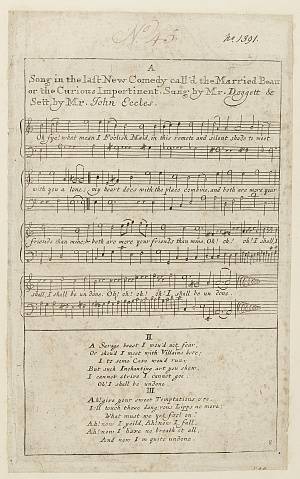 No 45
No. 1391.
A
Song in the last New Comedy call'd the Married Beau
or the Curious Impertinent. Sung by Mr. Doggett &
Sett by Mr. John Eccles.
Oh fye! what mean I Foolish Maid, in this remote and silent shade to meet
with you a lone, my heart does with the place combine, and both are more your
friends than mine, & both are more your friends than mine, Oh! oh! oh! I shall, I
shall, I shall be un done, Oh! oh! oh! I shall be un done.
II
A Savage beast I wou'd not fear,
Or shou'd I meet with Villains here;
I to some Cave wou'd run;
But such Inchanting art you shew,
I cannot strive I cannot goe
Oh! I shall be undone.
III
Ah! give your sweet Temptations o're,
I'll touch those dang'rous Lipps no more
What must we yet fool on
Ah! now I yeild, Ah! now I fall,
Ah! now I have no breath at all,
And now I'm quite undone.